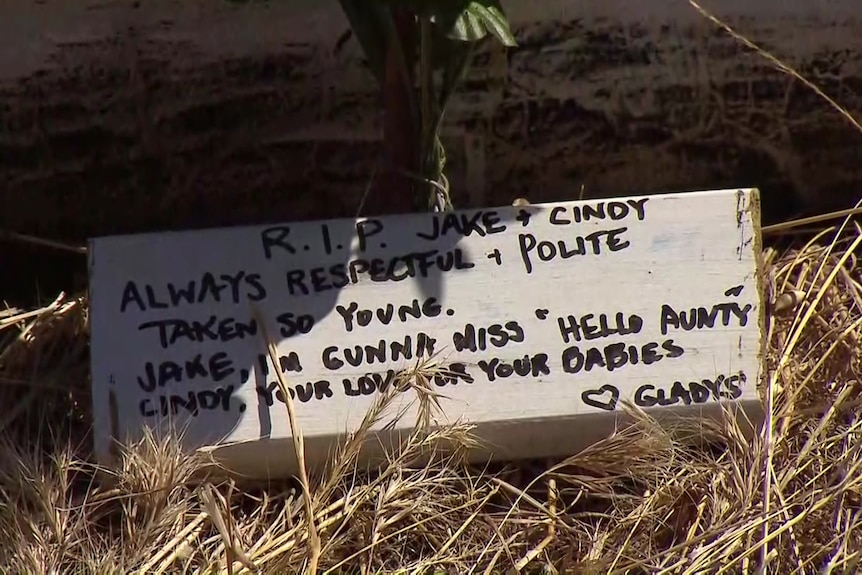 R.I.P. JAKE + CINDY
ALWAYS RESPECTFUL + POLITE
TAKEN SO YOUNG.
JAKE, I'M GUNNA MISS "HELLO AUNTY"
CINDY, YOUR LOVE FOR YOUR BABIES
♡ GLADYS